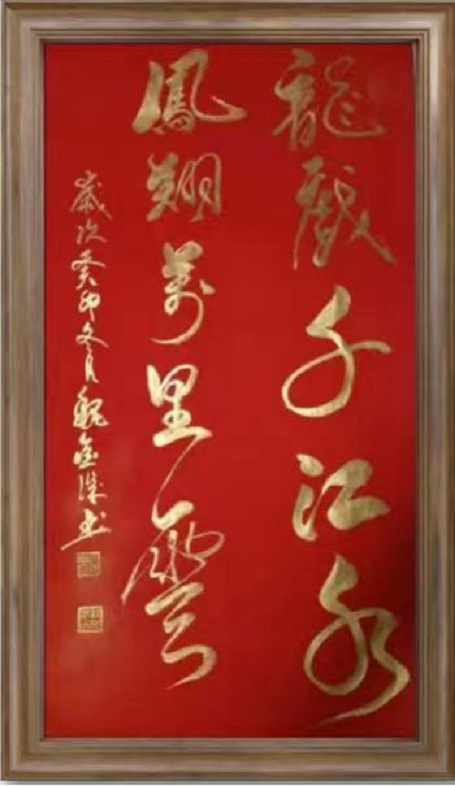 龍戲千江水
鳳翔萬里雲
歲次癸卯冬月魏金城書